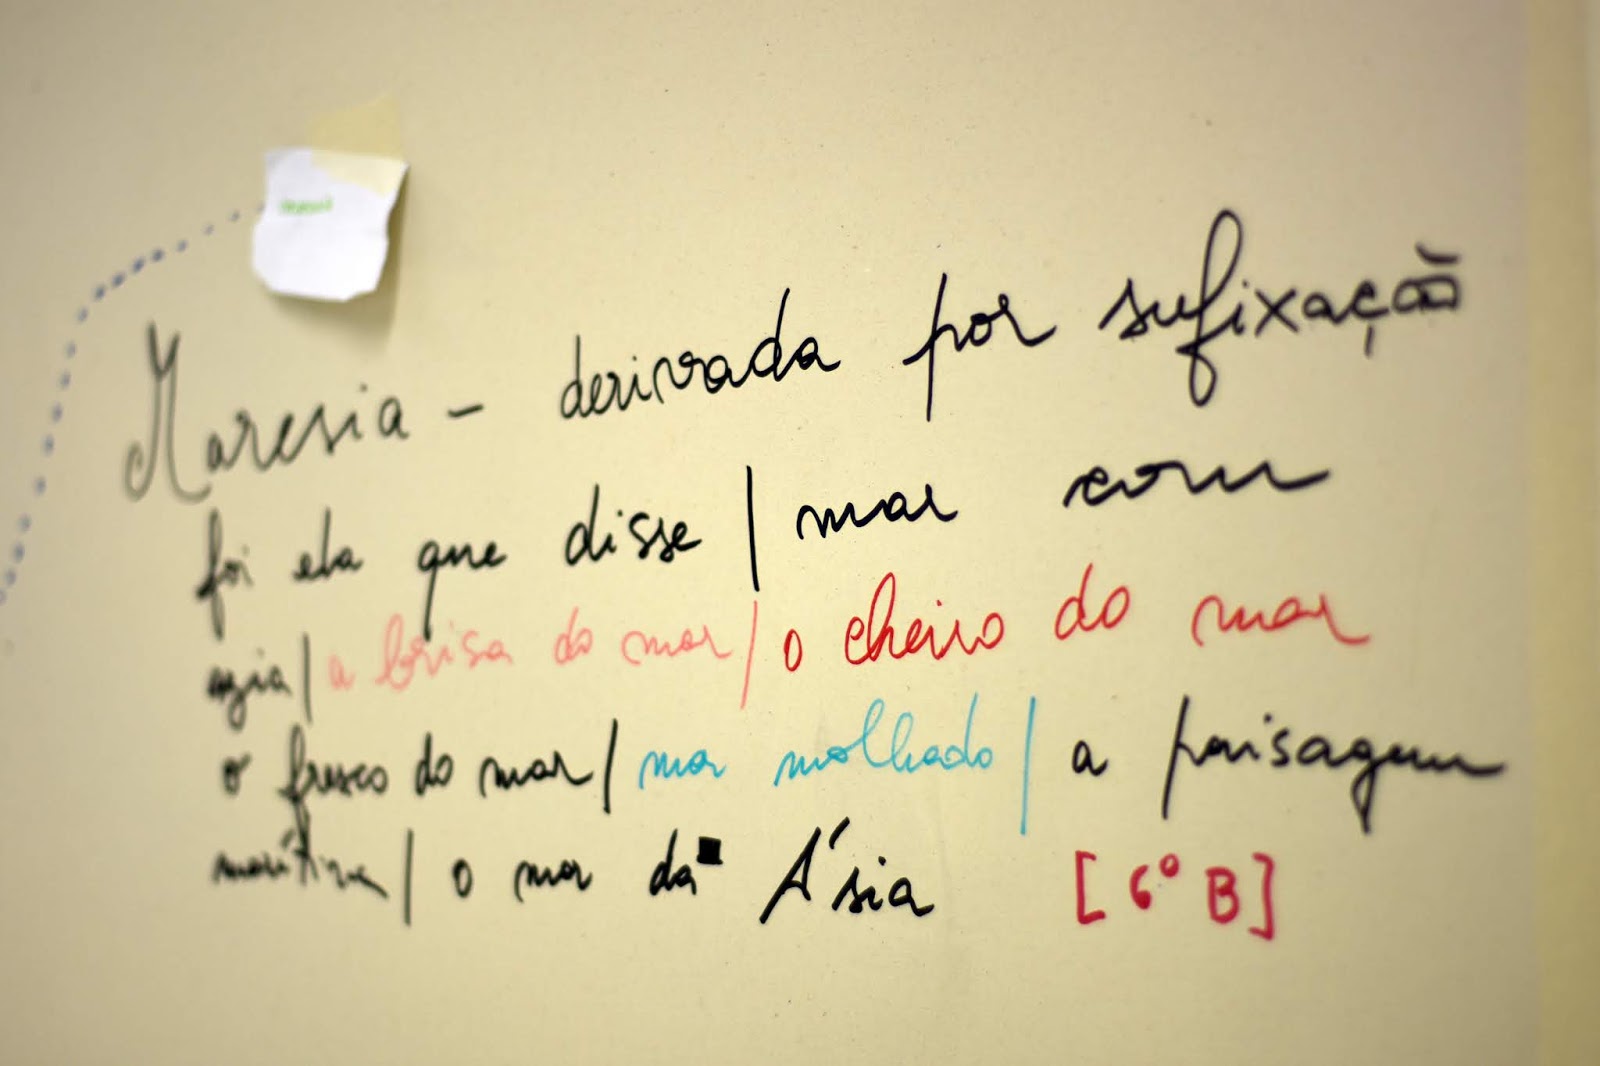 Maresia - derivada por sufixação
foi ela que disse | mar com
azia | a brisa do mar | o cheiro do mar
o fresco do mar | mar molhado | a paisagem
marítima | o mar da Ásia [6º B]